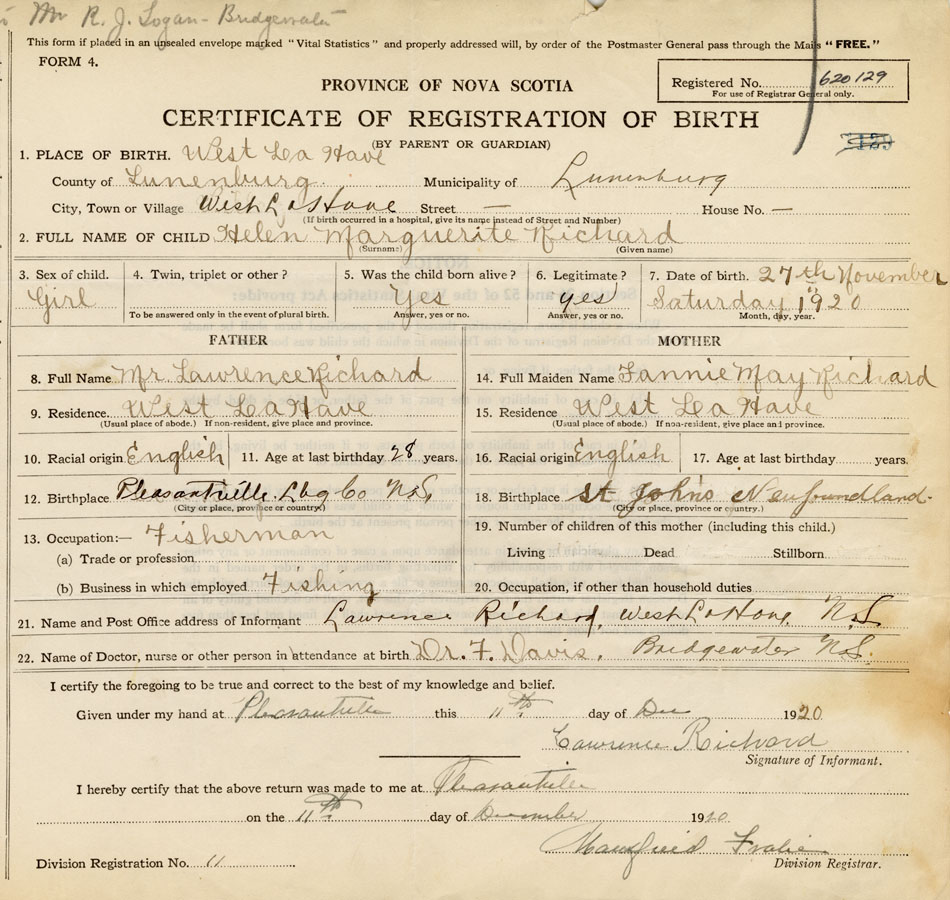 Mr R. J. Logan - Bridgewater
This form if placed in an unsealed envelope marked "Vital Statistics" and properly addressed will, by order of the Postmaster General pass through the Mails "FREE."
FORM 4.
PROVINCE OF NOVA SCOTIA
Registered No. 620129
For use of Registrar General only.
CERTIFICATE OF REGISTRATION OF BIRTH
(BY PARENT OR GUARDIAN)
1. PLACE OF BIRTH. West La Have
County of Lunenburg. Municipality of Lunenburg
City, Town or Village West LaHave Street — House No. —
(If birth occurred in a hospital, give its name instead of Street and Number)
2. FULL NAME OF CHILD Helen Marguerite Richard
(Surname) (Given name)
3. Sex of child. 4. Twin, triplet or other? 5. Was the child born alive? 6. Legitimate? 7. Date of birth. 27th November
Girl Yes yes Saturday 1920
To be answered only in the event of plural birth. Answer, yes or no. Answer, yes or no. Month, day, year.
FATHER MOTHER
8. Full Name Mr. Lawrence Richard 14. Full Maiden Name Fannie May Richard
9. Residence. West La Have 15. Residence West La Have
(Usual place of abode.) If non-resident, give place and province. (Usual place of abode.) If non-resident, give place and province.
10. Racial origin English 11. Age at last birthday 28 years. 16. Racial origin English 17. Age at last birthday years.
12. Birthplace Pleasantville. Lbg Co N.S. 18. Birthplace St John's Newfoundland-
(City or place, province or country) (City or place, province or country.)
13. Occupation:— Fisherman 19. Number of children of this mother (including this child.)
(a) Trade or profession Living Dead Stillborn
(b) Business in which employed Fishing 20. Occupation, if other than household duties
21. Name and Post Office address of Informant Lawrence Richard, West LaHave, N.S.
22. Name of Doctor, nurse or other person in attendance at birth Dr. F. Davis, Bridgewater N.S.
I certify the foregoing to be true and correct to the best of my knowledge and belief.
Given under my hand at Pleasantville this 11th day of Dec 1920
Lawrence Richard
Signature of Informant.
I hereby certify that the above return was made to me at Pleasantville
on the 11th day of December 1920
Mansfield
Division Registration No. 11 Division Registrar.